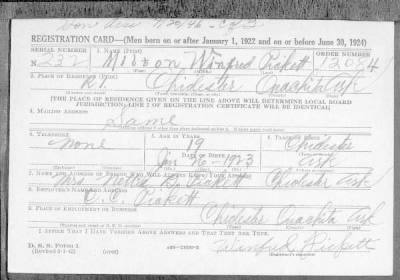 REGISTRATION CARD—(Men born on or after January 1, 1922 and on or before June 30, 1924)
SERIAL NUMBER 1. NAME (Print) ORDER NUMBER
N 232 Milton Winfred Pickett
2. PLACE OF RESIDENCE (Print)
R1. Chidister Ouachita Ark
[THE PLACE OF RESIDENCE GIVEN ON THE LINE ABOVE WILL DETERMINE LOCAL BOARD
JURISDICTION; LINE 2 OF REGISTRATION CERTIFICATE WILL BE IDENTICAL]
3. MAILING ADDRESS
Same
4. TELEPHONE 5. AGE IN YEARS 6. PLACE OF BIRTH
None 19 Chidister
DATE OF BIRTH
Jan 26 1923 Ark
7. NAME AND ADDRESS OF PERSON WHO WILL ALWAYS KNOW YOUR ADDRESS
Mrs. Pickett Chidister Ark
8. EMPLOYER'S NAME AND ADDRESS
C. Pickett
9. PLACE OF EMPLOYMENT OR BUSINESS
Chidister Ouachita Ark
I AFFIRM THAT I HAVE VERIFIED ABOVE ANSWERS AND THAT THEY ARE TRUE.
D. S. S. Form 1
(over)
Winfred Pickett